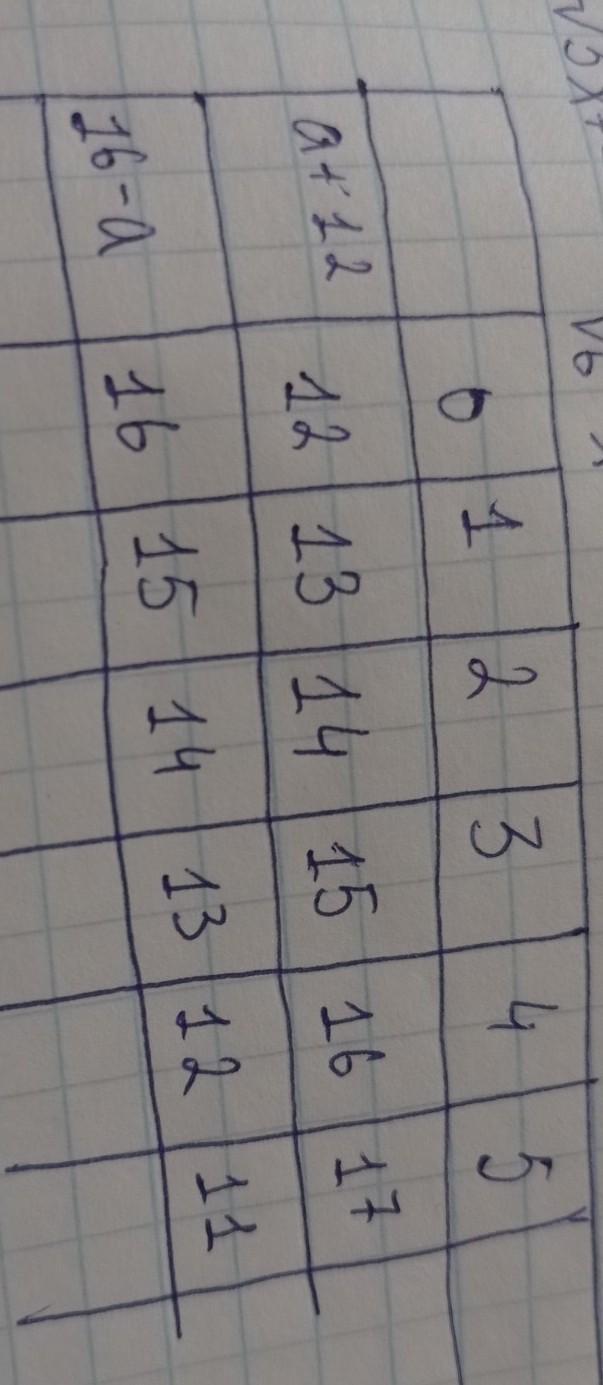 0 1 2 3 4 5
a+12 12 13 14 15 16 17
16-a 16 15 14 13 12 11